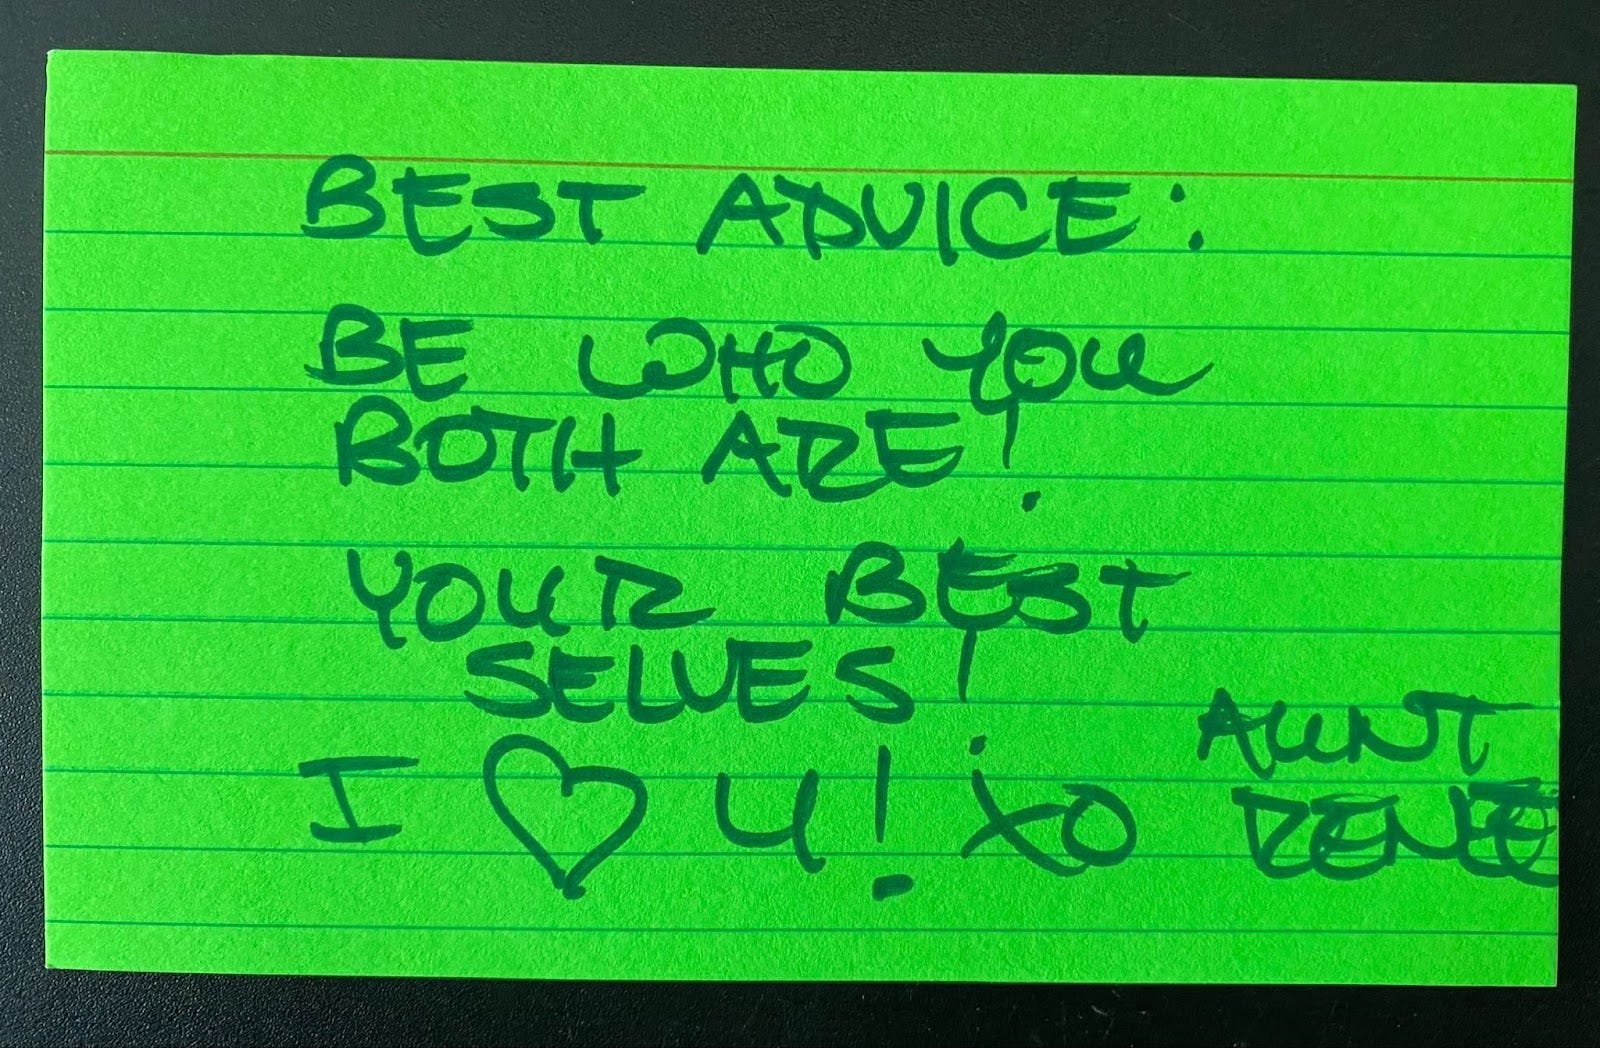 BEST ADVICE:
BE WHO YOU
BOTH ARE!
YOUR BEST
SELVES!
I ♡ U! XO AUNT
RENEE